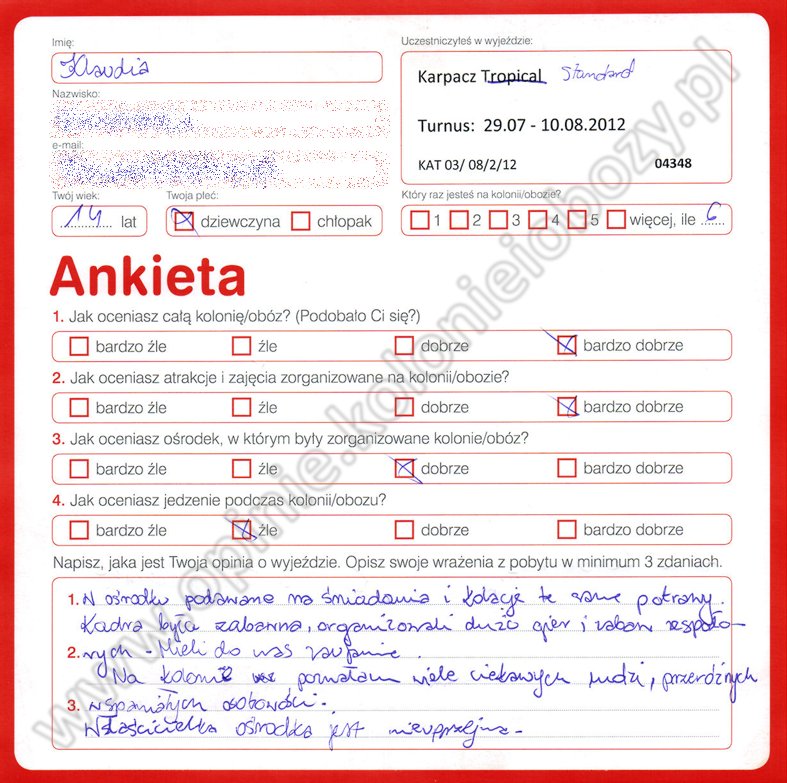 Imię:
Klaudia
Uczestniczyłeś w wyjeździe:
Karpacz Tropical Standard
Turnus: 29.07 - 10.08.2012
KAT 03/ 08/2/12 04348
Nazwisko:
e-mail:
Twój wiek:
14 lat
Twoja płeć:
dziewczyna chłopak
Który raz jesteś na kolonii/obozie?
1 2 3 4 5 więcej, ile 6
Ankieta
1. Jak oceniasz całą kolonię/obóz? (Podobało Ci się?)
bardzo źle źle dobrze bardzo dobrze
2. Jak oceniasz atrakcje i zajęcia zorganizowane na kolonii/obozie?
bardzo źle źle dobrze bardzo dobrze
3. Jak oceniasz ośrodek, w którym były zorganizowane kolonie/obóz?
bardzo źle źle dobrze bardzo dobrze
4. Jak oceniasz jedzenie podczas kolonii/obozu?
bardzo źle źle dobrze bardzo dobrze
Napisz, jaka jest Twoja opinia o wyjeździe. Opisz swoje wrażenia z pobytu w minimum 3 zdaniach.
1. W ośrodku podawane na śniadania i kolacje te same potrawy.
Kadra była zabawna, organizowali dużo gier i zabaw zespoło-
2. wych - Mieli do nas zaufanie.
Na kolonii poznałam wiele ciekawych ludzi, przeróżnych
3. wspaniałych osobowości.
Właścicielka ośrodka jest nieuprzejma -
www.opinie.kolonieiobozy.pl